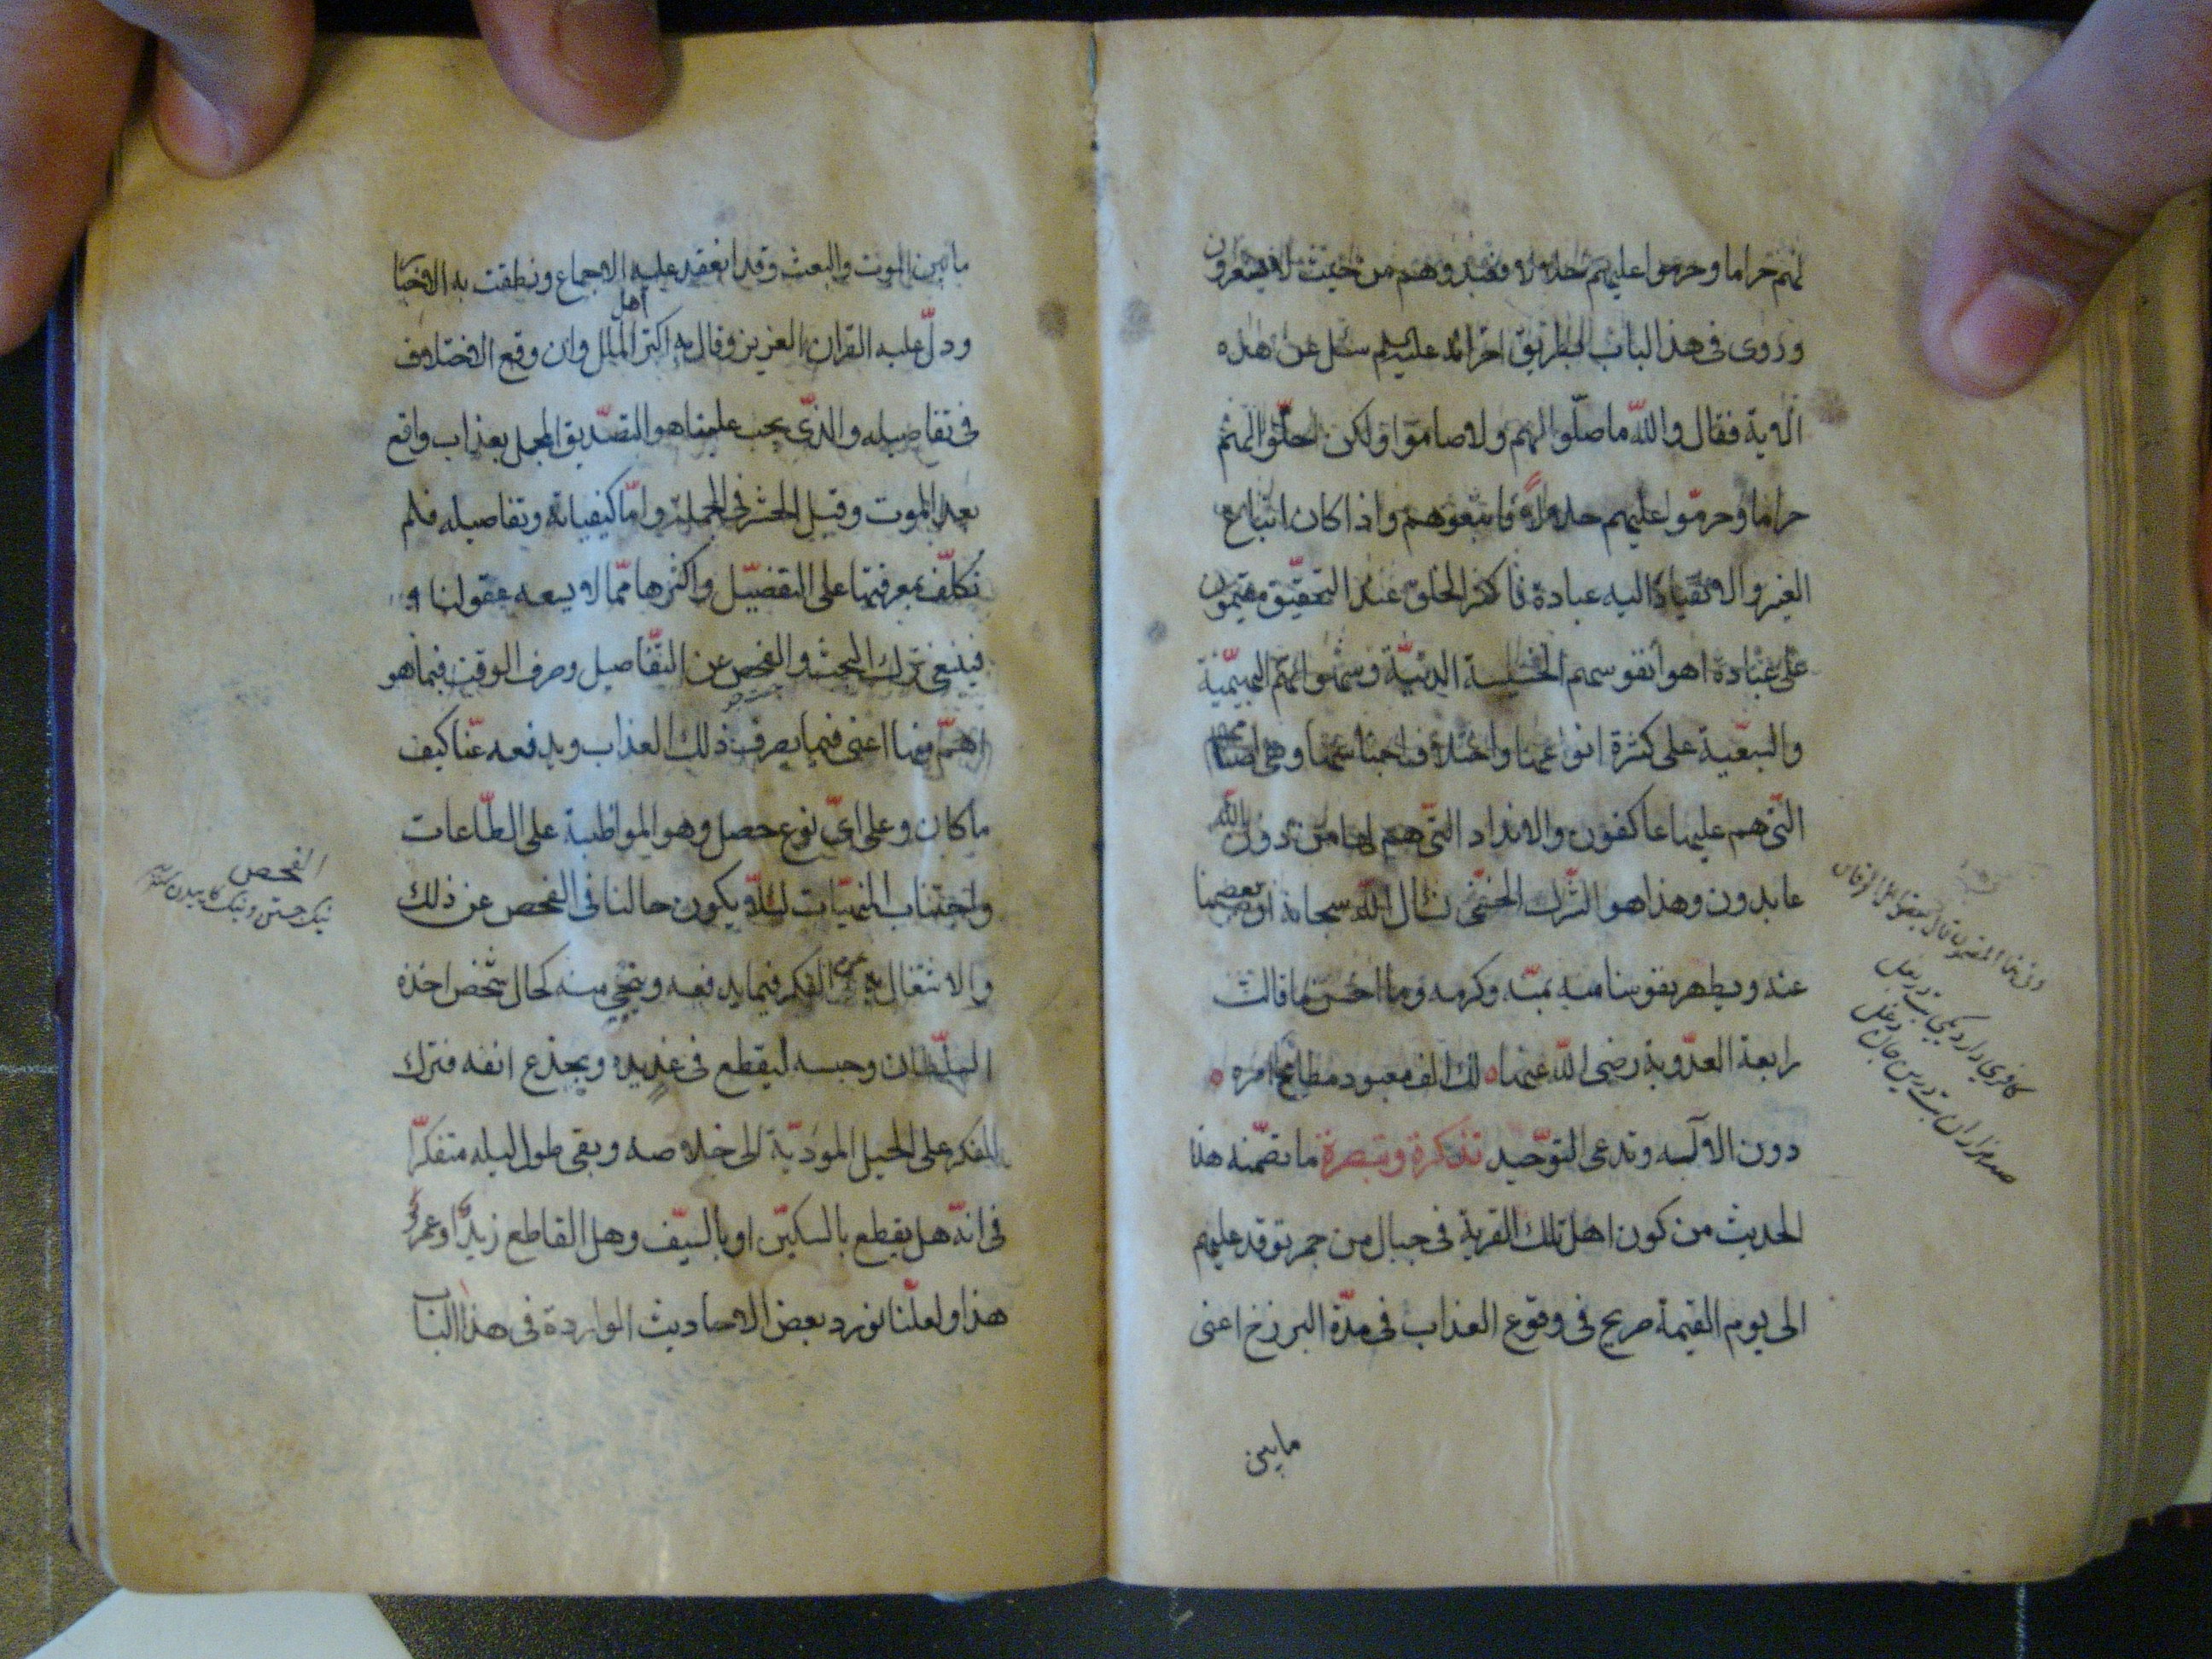 لهم حراما وحرموا عليهم حلالا فعبدوهم من حيث لا يشعرون
وروى فى هذا الباب بطريق اخر انه عليه السلم سئل عن هذه
الاية فقال والله ما صلّوا لهم ولا صاموا ولكن احلّوا لهم
حراما وحرمّوا عليهم حلالاً فاتبعوهم واذا كان اتباع
الغير والانقياد اليه عبادة فاكثر الخلق عند التحقيق مقيمون
على عبادة اهواء نفوسهم الخسيسة الدنيّة وشهواتهم البهيميّة
والسبعيّة على كثرة انواعها واختلاف اجناسها وهى اصنامهم
التّى هم عليها عاكفون والانداد التّى هم لها من دون الله
عابدون وهذا هو الشّرك الخفىّ نسال الله سبحانه ان يعصمنا
عنه ويطهر نفوسنا منه بمنّه وكرمه وما احسن ما قالت
رابعة العدّوية رضى الله عنها لك الف معبود مطاع امره
دون الاله وتدعى التوّحيد تذكرة وتبصرة ما تضمّنه هذا
الحديث من كون اهل تلك القرية فى جبال من جمر توقد عليهم
الى يوم القيمة صريح فى وقوع العذاب فى مدّة البرزخ اعنى
ما بين
كافرى
صد هزاران بت
ما بين الموت والبعث وقد انعقد عليه الاجماع ونطقت به الاخبار
ودلّ عليه القران العزيز وقال به اكثر اهل الملل وان وقع الاختلاف
فى تفاصيله والذّى يجب علينا هو التصّديق المجمل بعذاب واقع
بعد الموت وقبل الحشر فى الجملة وامّا كيفياته وتفاصيله فلم
نكلّف بمعرفتها على التفصيّل واكثرها ممّا لا يسعه عقولنا
فينبغى ترك البحث والفحص عن التّفاصيل وصرف الوقت فيما هو
اهمّ منها اعنى فيما يصرف ذلك العذاب ويدفعه عنّا كيف
ما كان وعلى اىّ نوع حصل وهو المواظبة على الطّاعات
واجتناب المنهيّات لئلاّ يكون حالنا فى الفحص عن ذلك
والاشتغال به عن الفكر فيما يدفعه وينجى منه كحال شخص اخذه
السّلطان وحبسه ليقطع فى غد يده ويجذع انفه فترك
الفكر على الحيل المودّية الى خلاصه وبقى طول ليله متفكرّا
فى انهّ هل يقطع بالسكيّن او بالسيّف وهل القاطع زيد او عمرو
هذا ولعلّنا نورد بعض الاحاديث الواردة فى هذا الباب
الفحص
نيك جستن ونيك كاويدن